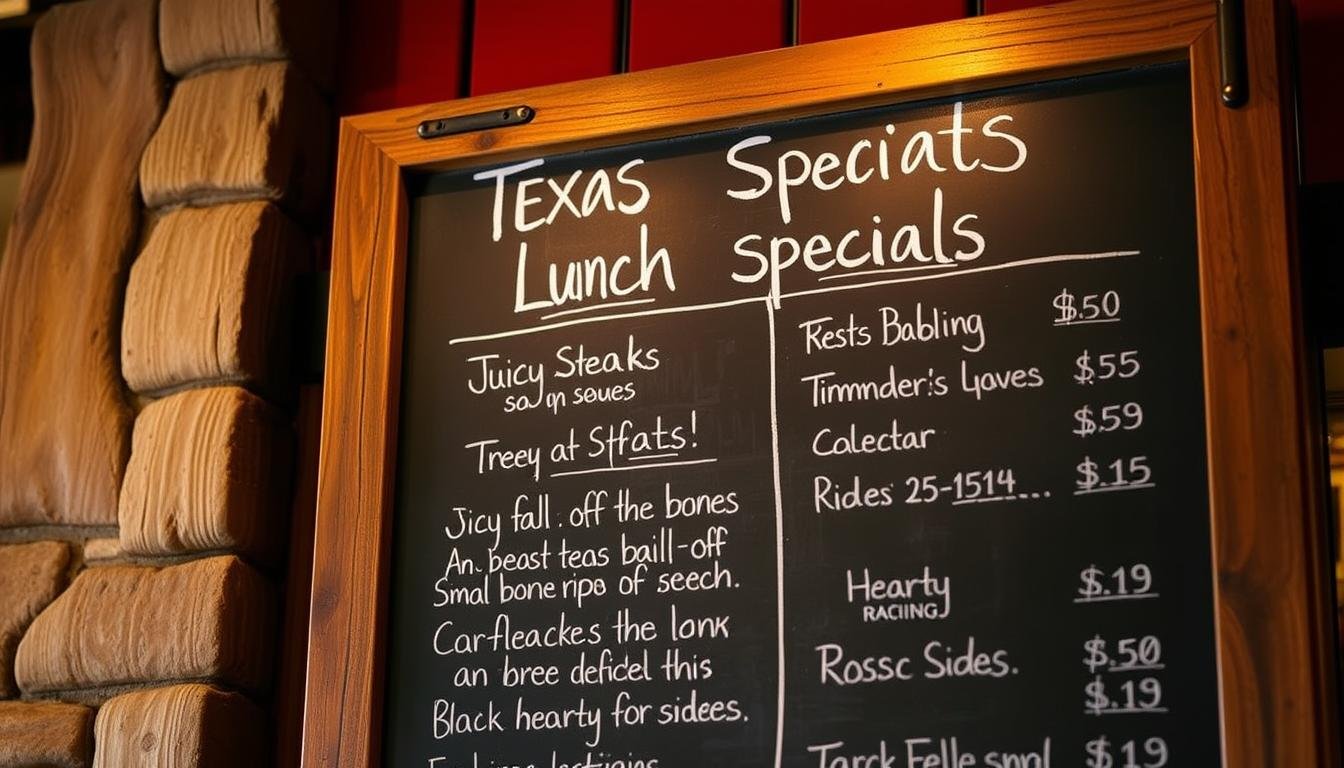 Texas Speciats
Lunch specials
Juicy Steaks
Treey at Stfats!
Jicy fall. off the bones
An. beast teas baill-off
Small bone ripe of seech.
Car-fleackes the lonk
an bree deficel this
Black hearty for sidees.
Rests Babling $.50
Timmder's $55
Calectar $59
Rides 25-1514... $.15
Hearty $.19
RACIING
Rossc Sides. $.50
$.19
Tarck Felle $19